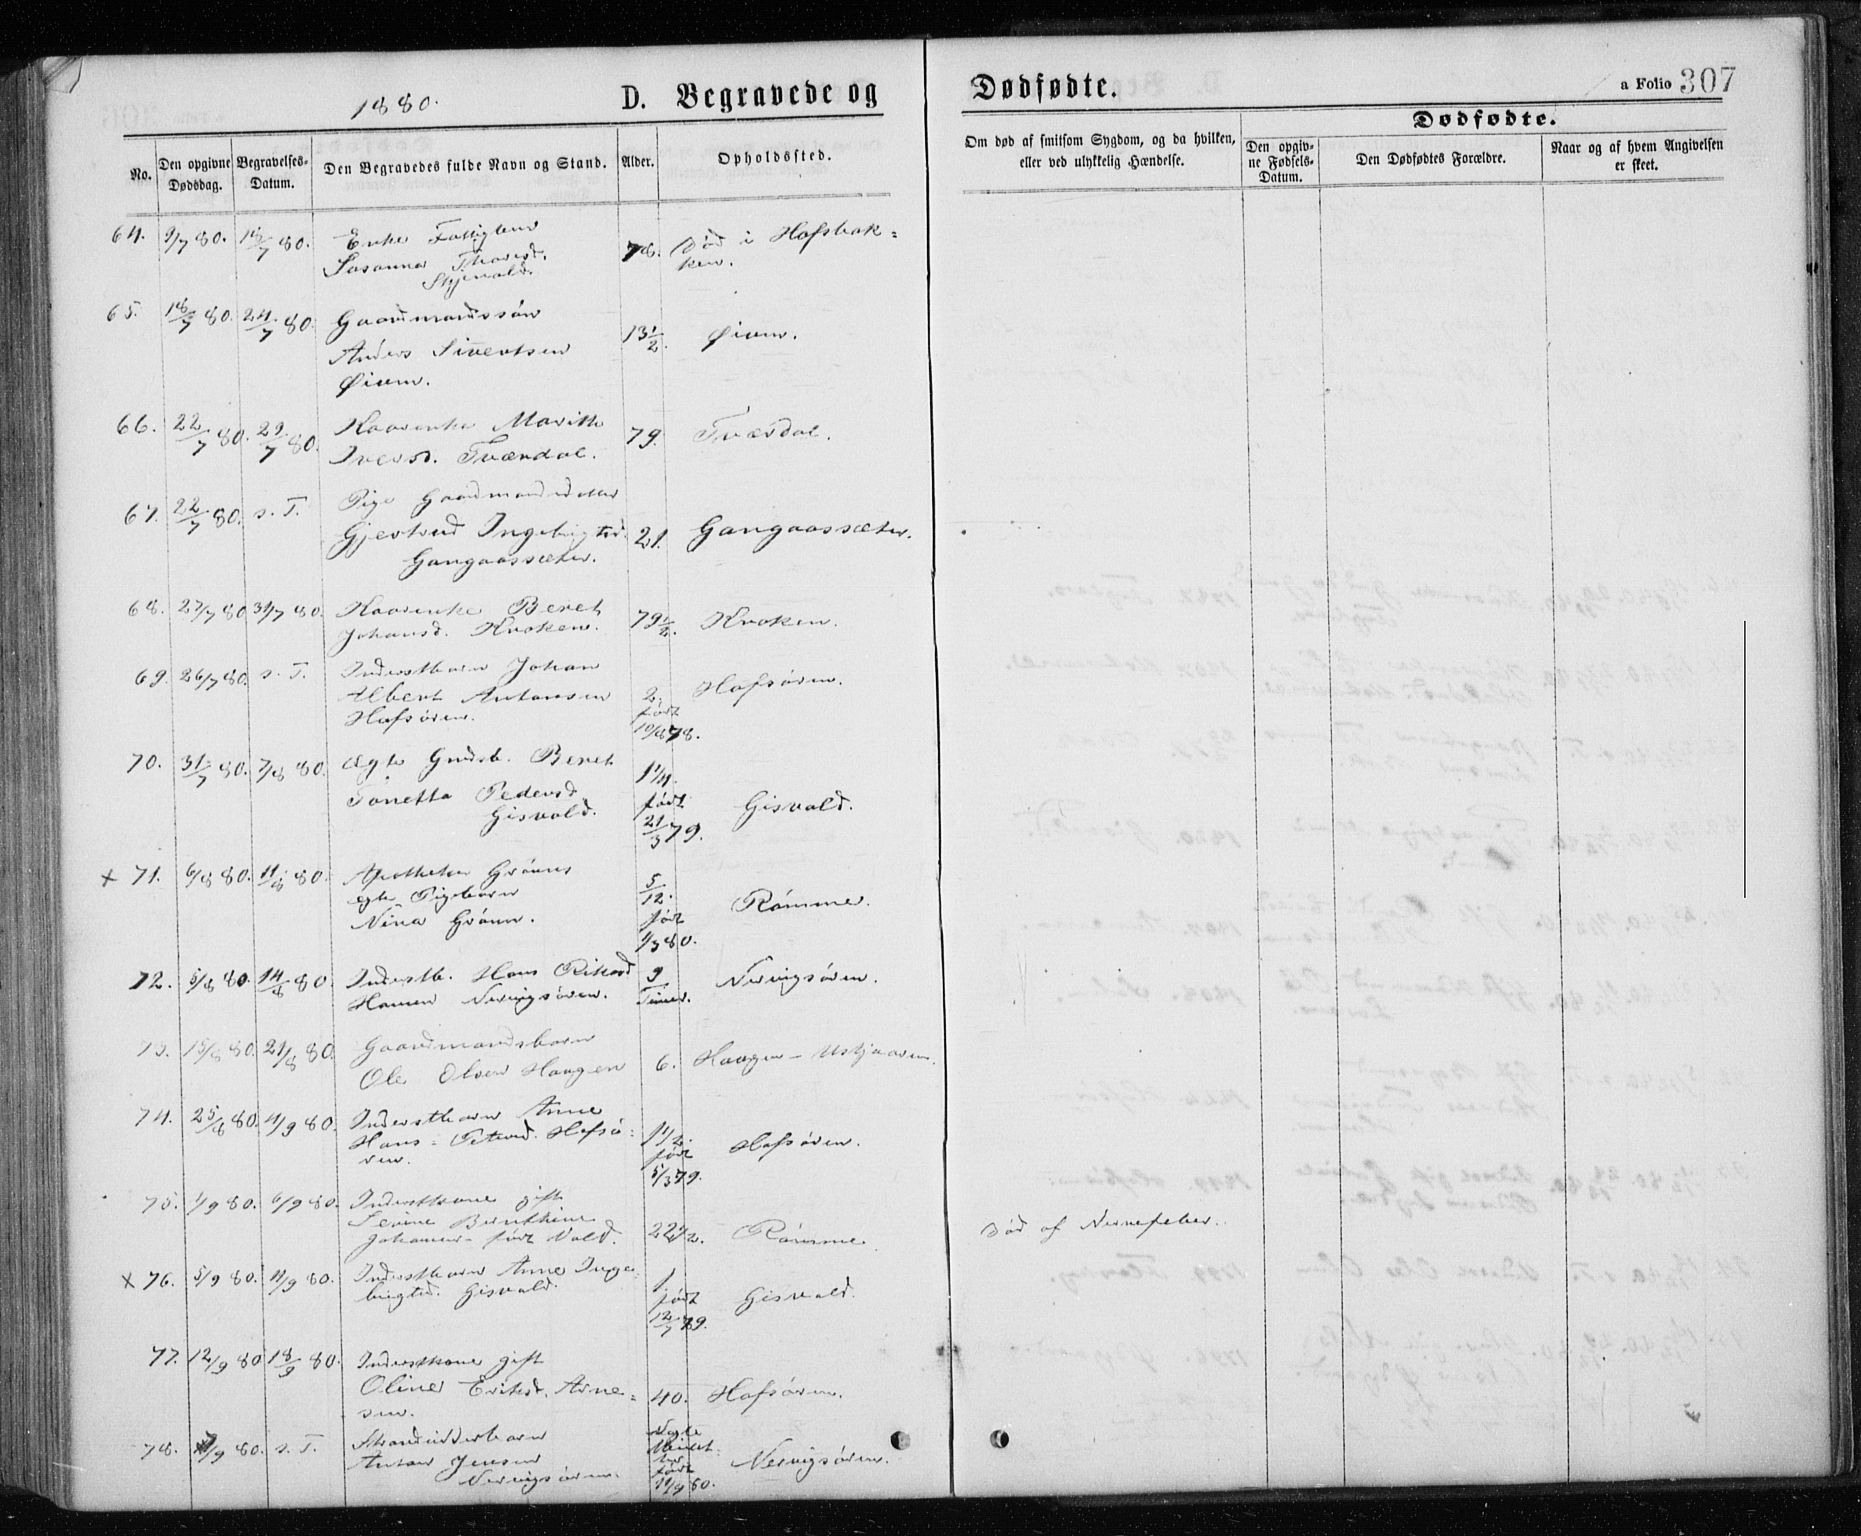 1880.
D. Begravede og Dødfødte.
a Folio 307
No.
Den opgivne Dødsdag.
Begravelses-Datum.
Den Begravedes fulde Navn og Stand.
Alder.
Opholdssted.
Om død af smitsom Sygdom, og da hvilken, eller ved ulykkelig Hændelse.
Dødfødte.
Den opgivne Fødsels-Datum.
Den Dødfødtes Forældre.
Naar og af hvem Angivelsen er skeet.
64. 9/7 80. /7 80. Enke Fattiglem 78. Død i Hofsbak=
Susanna ken.
65. 18/7 80. 24/7 80. Gaardmandssøn 13 1/2 Øien.
Anders Sivertsen
Øien.
66. 22/7 80. 29/7 80. Kaarenke Marith 79. Tværdal.
Iversd. Tværdal.
67. 22/7 80. s. T. Pige Gaardmandsdatter
Gjertrud Ingebrigtsd. 21. Gangaassæter.
Gangaassæter.
68. 27/7 80 31/7 80. Kaarenke Beret 79 1/2. Kroken.
Johansd. Kroken.
69. 26/7 80. s. T. Inderstbarn Johan 2. Hofsøren.
Albert Antonsen født
Hofsøren. 10/8 78.
70. 31/7 80. 7/8 80. Ægte Gmdsb. Beret 1 1/4.
Tonetta Pedersd født Gisvold.
Gisvold. 21/3 79.
x 71. 6/8 80. 11/8 80. Apotheker Grønns 5/12.
egte Pigebarn født Rømme.
Nina Grønn. 1/3 80.
72. 5/8 80. 14/8 80. Inderstb. Hans Rikard 9 Nervigsøren.
Hansen Nervigsøren. Timer.
73. 15/8 80. 21/8 80. Gaardmandsbarn
Ole Olsen Haugen 6. Haugen - Ustjaaren.
74. 25/8 80. 4/9 80. Inderstbarn Anne 1 1/2. Hofsøren.
Hans=Petersd. Hofsø= født
ren. 5/3 79.
75. 1/9 80. 6/9 80. Inderstkone gift
Serine Bernthine
Johansen født Vold. 22 1/2. Rømme. Død af Nervefeber.
x 76. 5/9 80. 11/9 80. Inderstbarn Anne Inge= 1. Gisvold.
brigtsd. Gisvold. født
12/7 79.
77. 12/9 80 18/9 80. Inderstkone gift
Oline Eriksd. Arne= 40. Hofsøren.
sen.
78. /9 80. s. T. Strandsidderbarn
Anton Jensen født Nervigsøren.
Nervigsøren. 11/9 80.